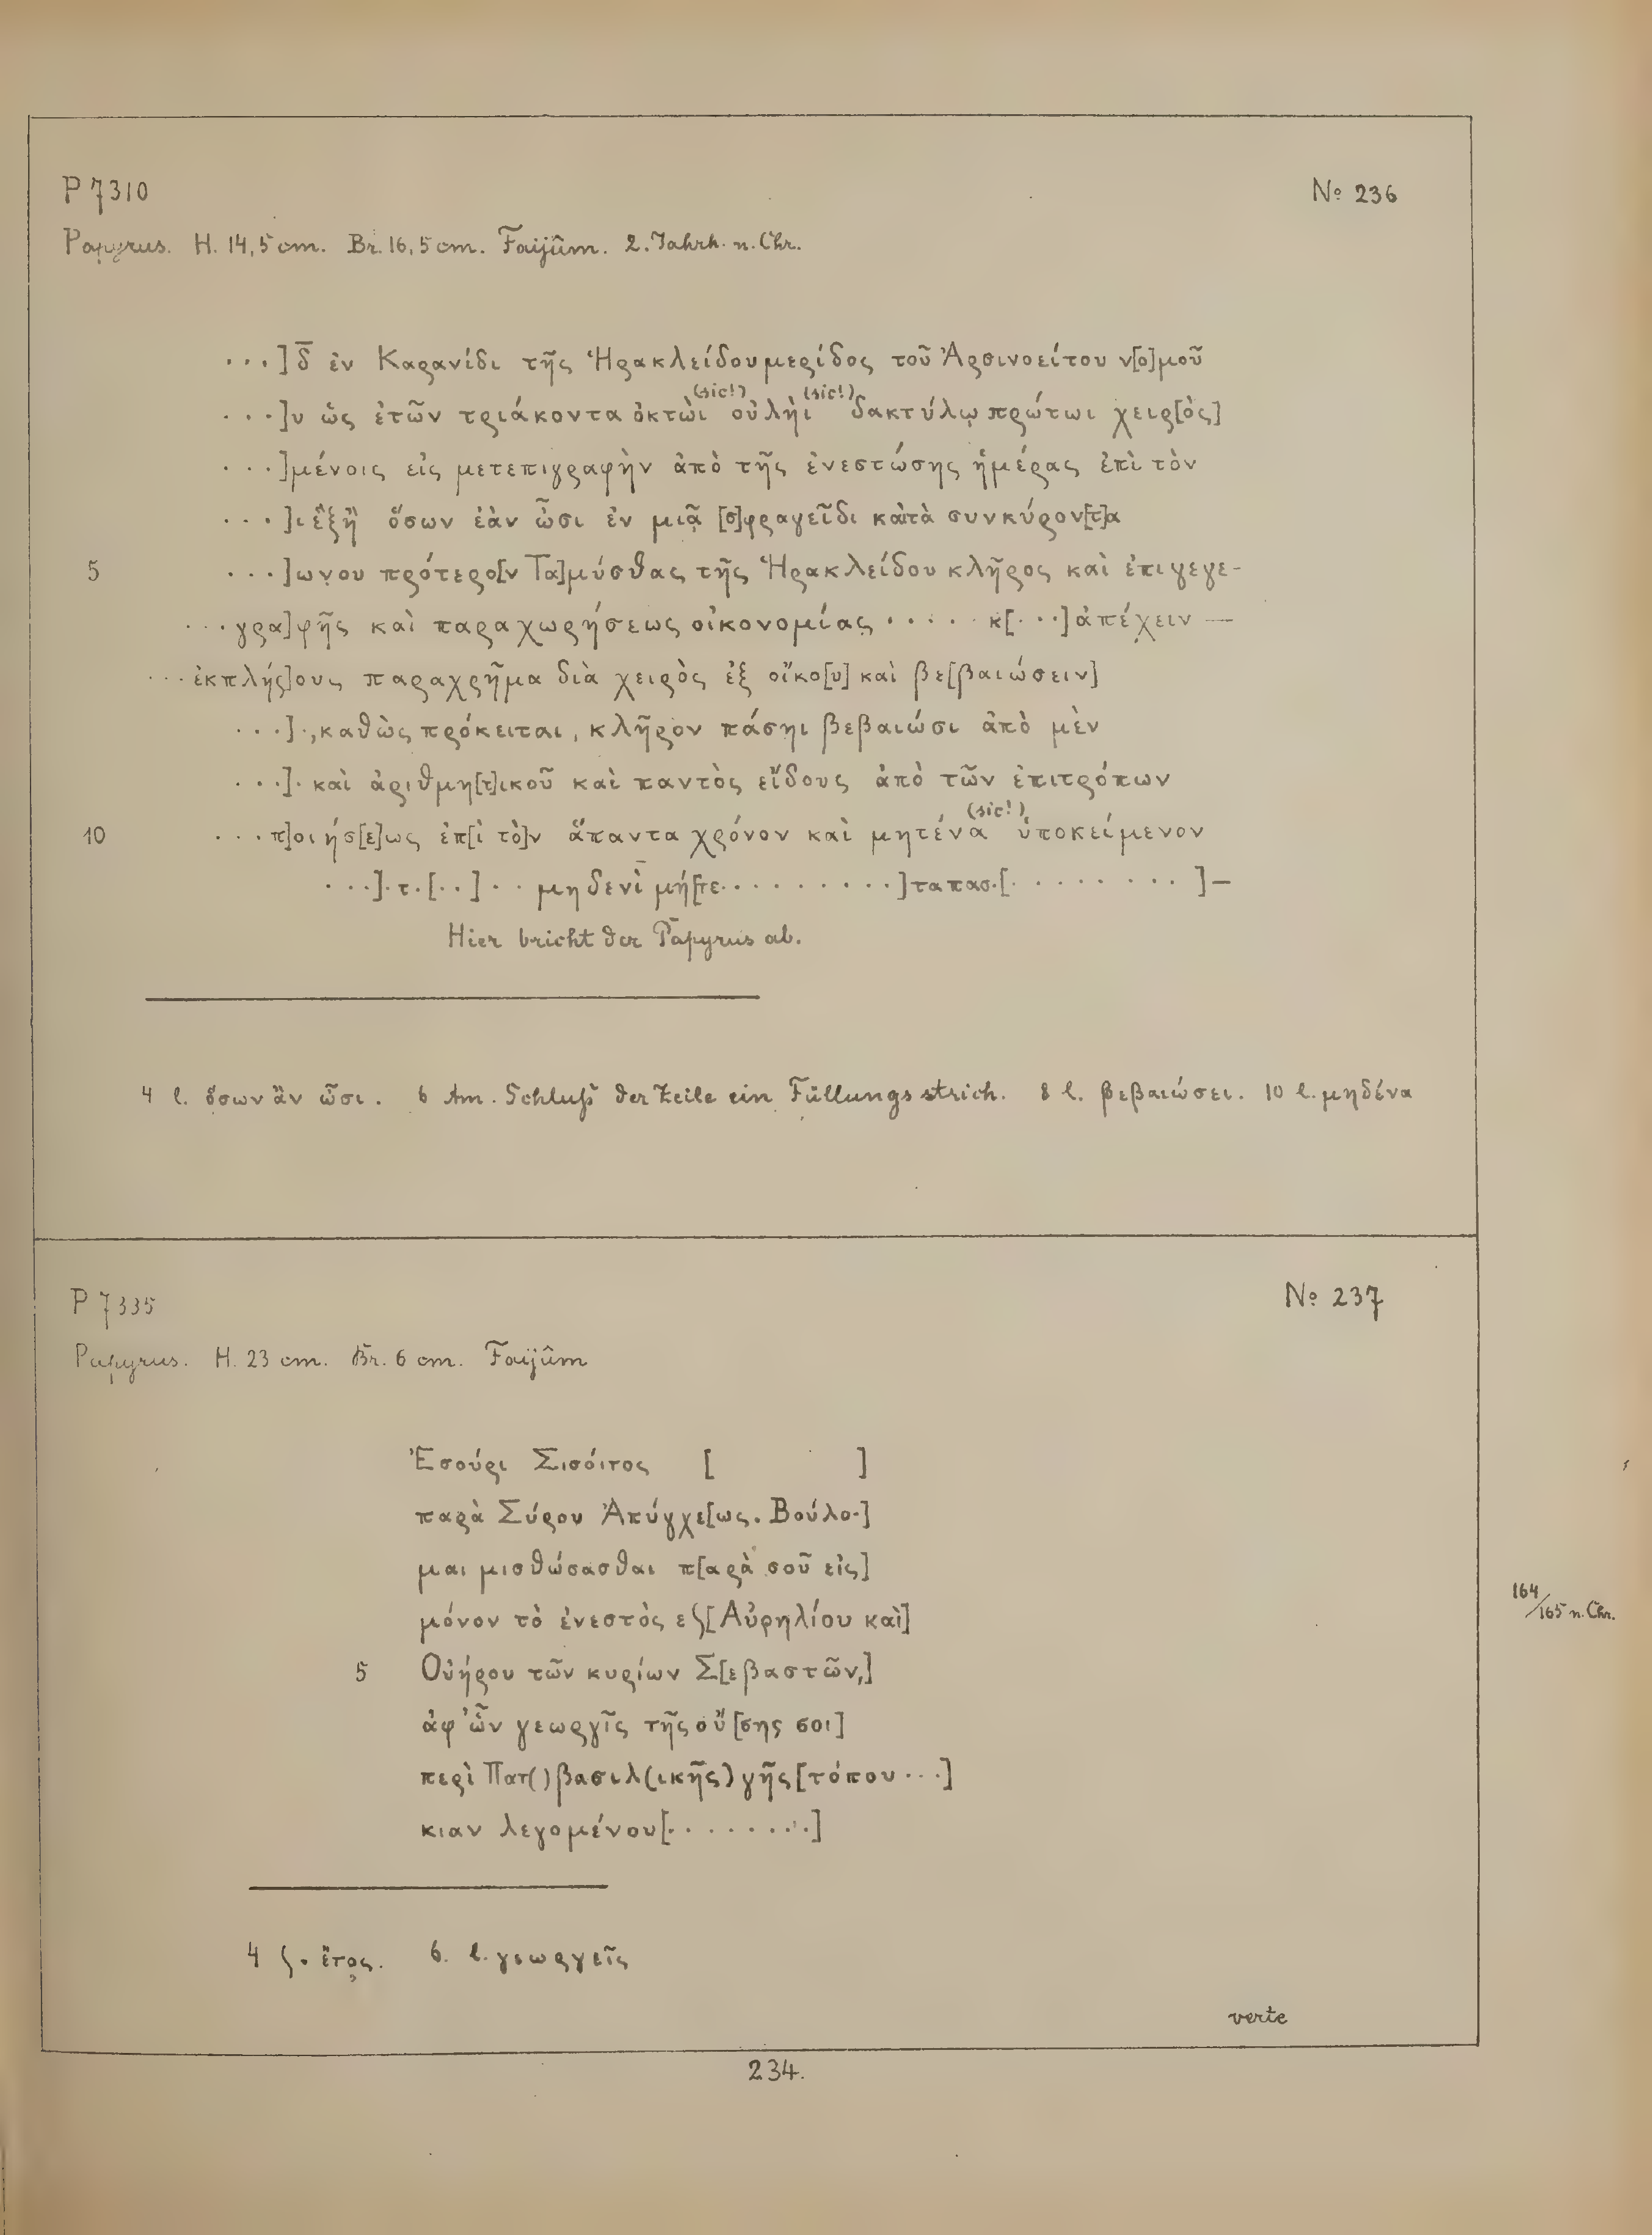 P 7310
No 236
Papyrus. H. 14,5 cm. Br. 16,5 cm. Faijûm. 2. Jahrh. n. Chr.
· · · ] δ̄ ἐν Καρανίδι τῆς Ἡρακλείδου μερίδος τοῦ Ἀρσινοείτου ν[ο]μοῦ
(sic!) (sic!)
· · · ]υ ὡς ἐτῶν τριάκοντα ὀκτὼι οὐλὴι δακτύλῳ πρώτωι χειρ[ὸς]
· · · ]μένοις εἰς μετεπιγραφὴν ἀπὸ τῆς ἐνεστώσης ἡμέρας ἐπὶ τὸν
· · · ]ι ἓξῆ ὅσων ἐὰν ὦσι ἐν μιᾷ [σ]φραγεῖδι κατὰ συνκύρον[τ]α
5 · · · ]ωνου πρότερο[ν Τα]μύσθας τῆς Ἡρακλείδου κλῆρος καὶ ἐπιγεγε-
· · · γρα]φῆς καὶ παραχωρήσεως οἰκονομίας · · · · · κ[· ··] ἀπέχειν —
· · · ἐκπλήσ]ους παραχρῆμα διὰ χειρὸς ἐξ οἴκο[υ] καὶ βε[βαιώσειν]
· · · ] · , καθὼς πρόκειται, κλῆρον πάσηι βεβαιώσι ἀπὸ μὲν
· · · ] · καὶ ἀριθμη[τ]ικοῦ καὶ παντὸς εἴδους ἀπὸ τῶν ἐπιτρόπων
(sic!)
10 · · · π]οιήσ[ε]ως ἐπ[ὶ τὸ]ν ἅπαντα χρόνον καὶ μητένα ὑποκείμενον
· · · ] · τ · [ · · ] · · μηδενὶ μή[τε · · · · · · · · · ] ταπασ · [ · · · · · · · · ] —
Hier bricht der Papyrus ab.
4 l. ὅσων ἂν ὦσι. 6 Am Schluß der Zeile ein Füllungsstrich. 8 l. βεβαιώσει. 10 l. μηδένα
P 7335
No 237
Papyrus. H. 23 cm. Br. 6 cm. Faijûm
Ἐσούρι Σισόιτος [ ]
παρὰ Σύρου Ἀπύγχε[ως. Βούλο-]
μαι μισθώσασθαι π[αρὰ σοῦ εἰς]
μόνον τὸ ἐνεστὸς ε ϛ[ Αὐρηλίου καὶ]
164/165 n. Chr.
5 Οὐήρου τῶν κυρίων Σ[εβαστῶν,]
ἀφ' ὧν γεωργῖς τῆς οὔ[σης σοι]
περὶ Πατ( ) βασιλ(ικῆς) γῆς [τόπου · · · ]
κιαν λεγομένου[· · · · · · · · ·]
4 ϛ · ἔτος. 6. l. γεωργεῖς
verte
234.